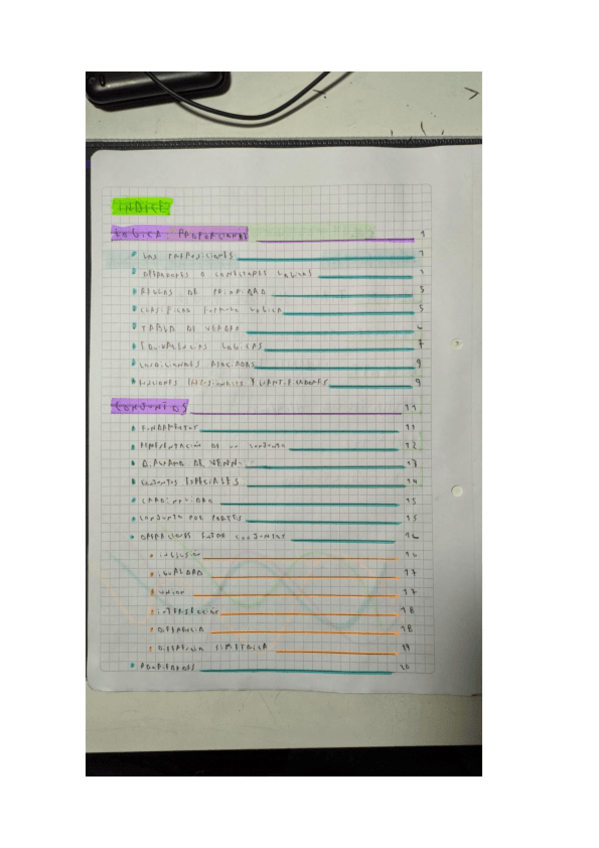 INDICE
LOGICA: PROPOSICIONAL 1
LAS PROPOSICIONES 1
OPERADORES O CONECTORES LOGICOS
REGLAS DE PRIORIDAD 5
CLASIFICAR FORMULA LOGICA 5
TABLA DE VERDAD 6
EQUIVALENCIAS LOGICAS 7
CONDICIONALES ASOCIADAS 8
FUNCIONES Y CUANTIFICADORES 9
CONJUNTOS 11
FUNDAMENTOS 11
REPRESENTACIÓN DE UN CONJUNTO 12
DIAGRAMA DE VENN 13
CONJUNTOS ESPECIALES 14
CARDINALIDAD 15
CONJUNTO POR PARTES 15
OPERACIONES ENTRE CONJUNTOS 16
INCLUSION 16
IGUALDAD 17
UNION 17
INTERSECCIÓN 18
DIFERENCIA 18
DIFERENCIA SIMETRICA 19
PROPIEDADES 20